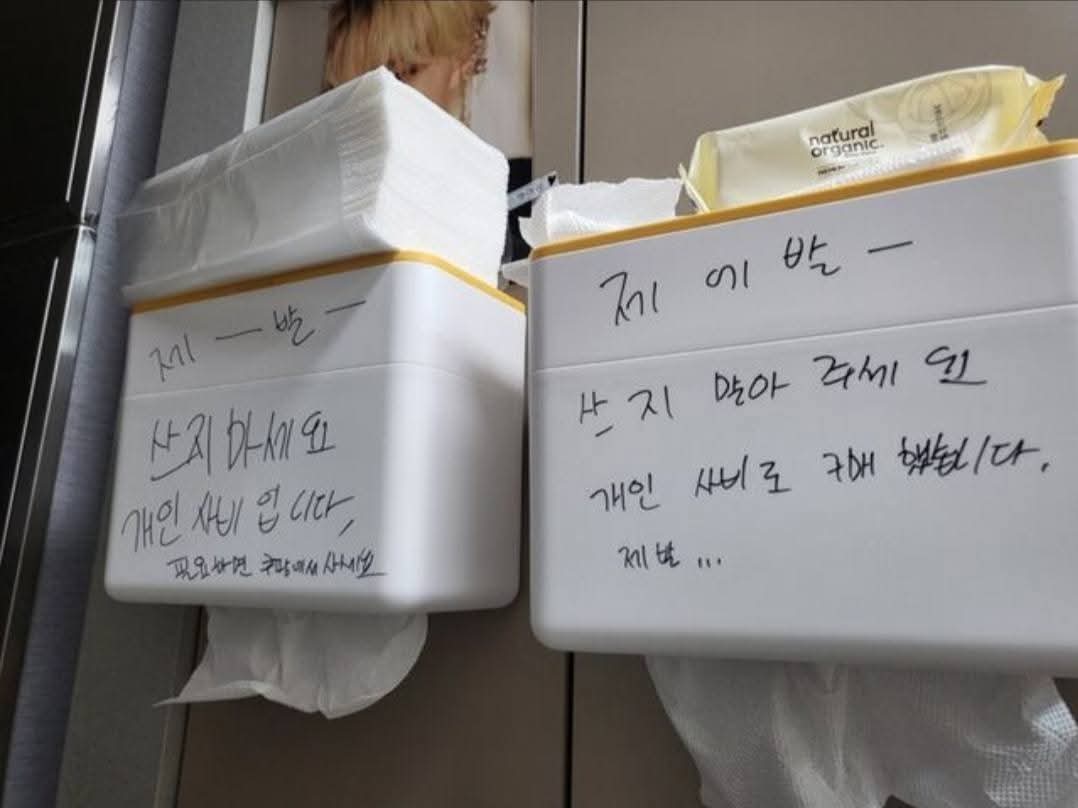 제 ㅡ 발 ㅡ
쓰지마세요
개인 사비 입니다,
필요하면 쿠팡에서 사세요
natural
organic.
제 에 발 ㅡ
쓰지 말아 주세요
개인 사비로 구매 했습니다.
제발 ...